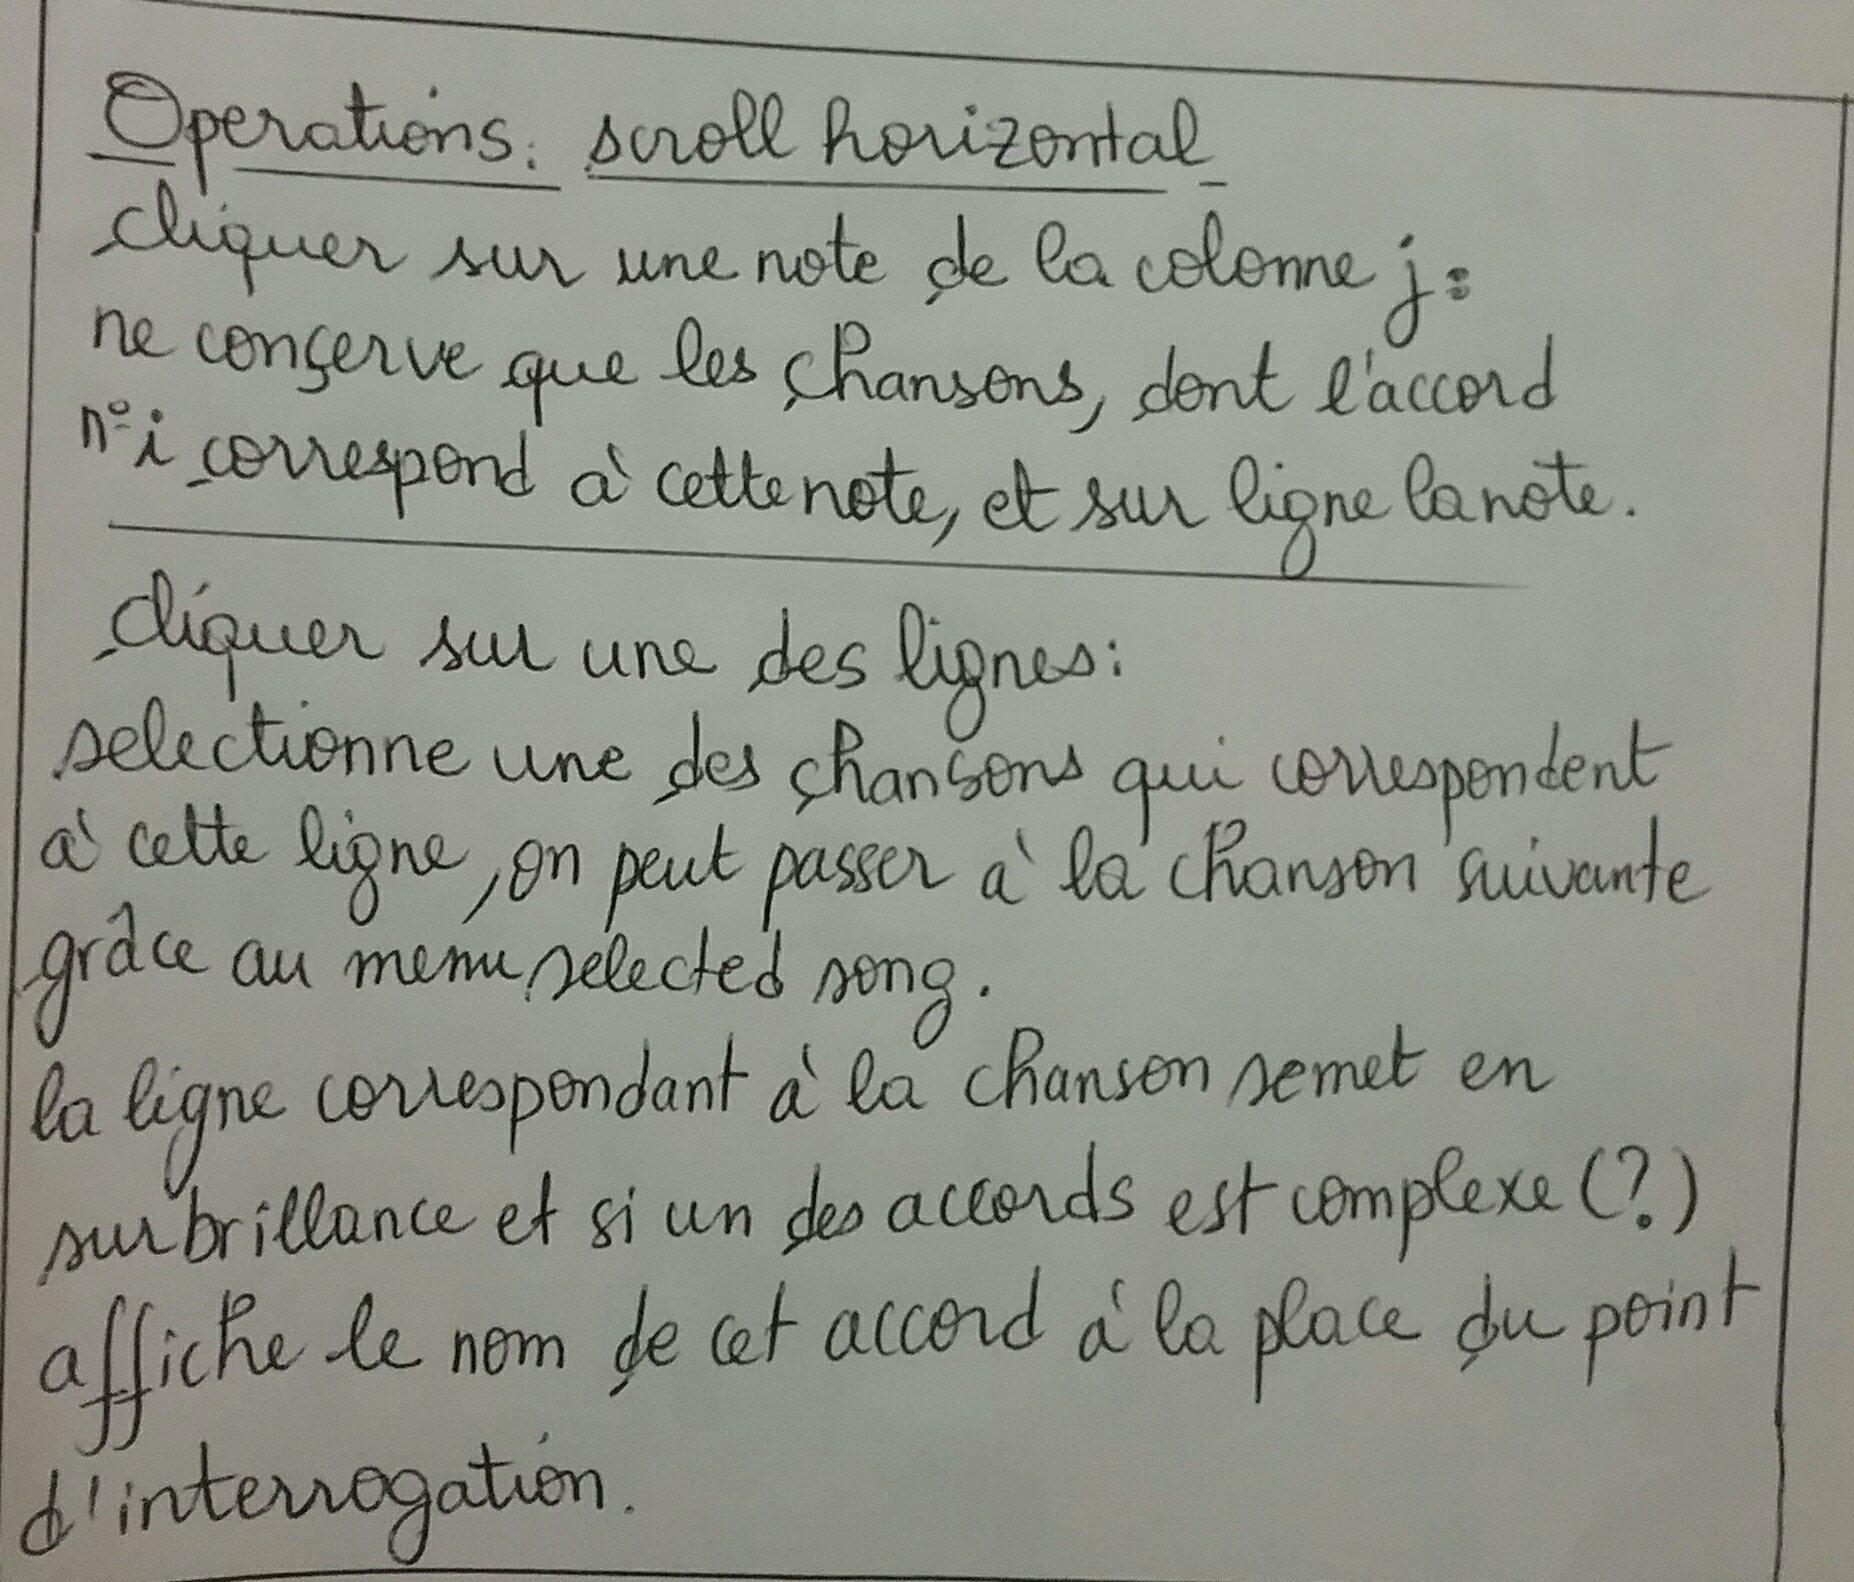 Operations: scroll horizontal
cliquer sur une note de la colonne j:
ne conserve que les chansons, dont l'accord
n° i correspond à cette note, et sur ligne la note.
cliquer sur une des lignes:
selectionne une des chansons qui correspondent
à cette ligne, on peut passer à la chanson suivante
grâce au menu selected song.
la ligne correspondant à la chanson se met en
surbrillance et si un des accords est complexe (?)
affiche le nom de cet accord à la place du point
d'interrogation.